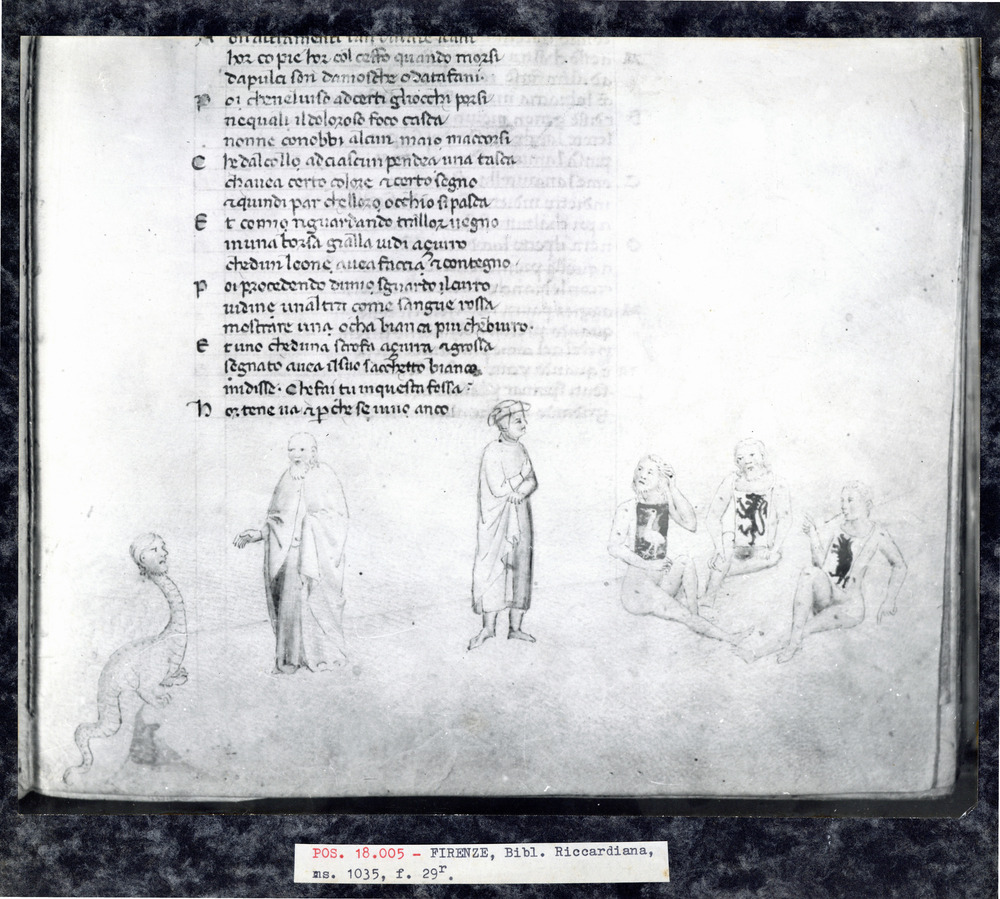 hor co pie hor col ceffo quando morsi
dapulci son damosche odatafani.
P oi cheneluiso adcerti gliocchi porsi
nequali ildoloroso foco casca
nonne conobbi alcun maio maccorsi
C hedalcollo adciascun pendea una tasca
chauea certo colore & certo segno
& quindi par chelloro occhio sipasca
E t comio riguardando tralloro uegno
inuna borsa gialla uidi açurro
chedun leone auea faccia & contegno.
P oi procedendo dimio sguardo ilcurro
uidine unaltra come sangue rossa
mostrare una ocha bianca piu cheburro.
E tuno cheduna scrofa açurra & grossa
segnato auea ilsuo sacchetto bianco
midisse. Che fai tu inquesta fossa
H or tene ua & p che se uiuo anco
POS. 18.005 - FIRENZE, Bibl. Riccardiana,
ms. 1035, f. 29r.